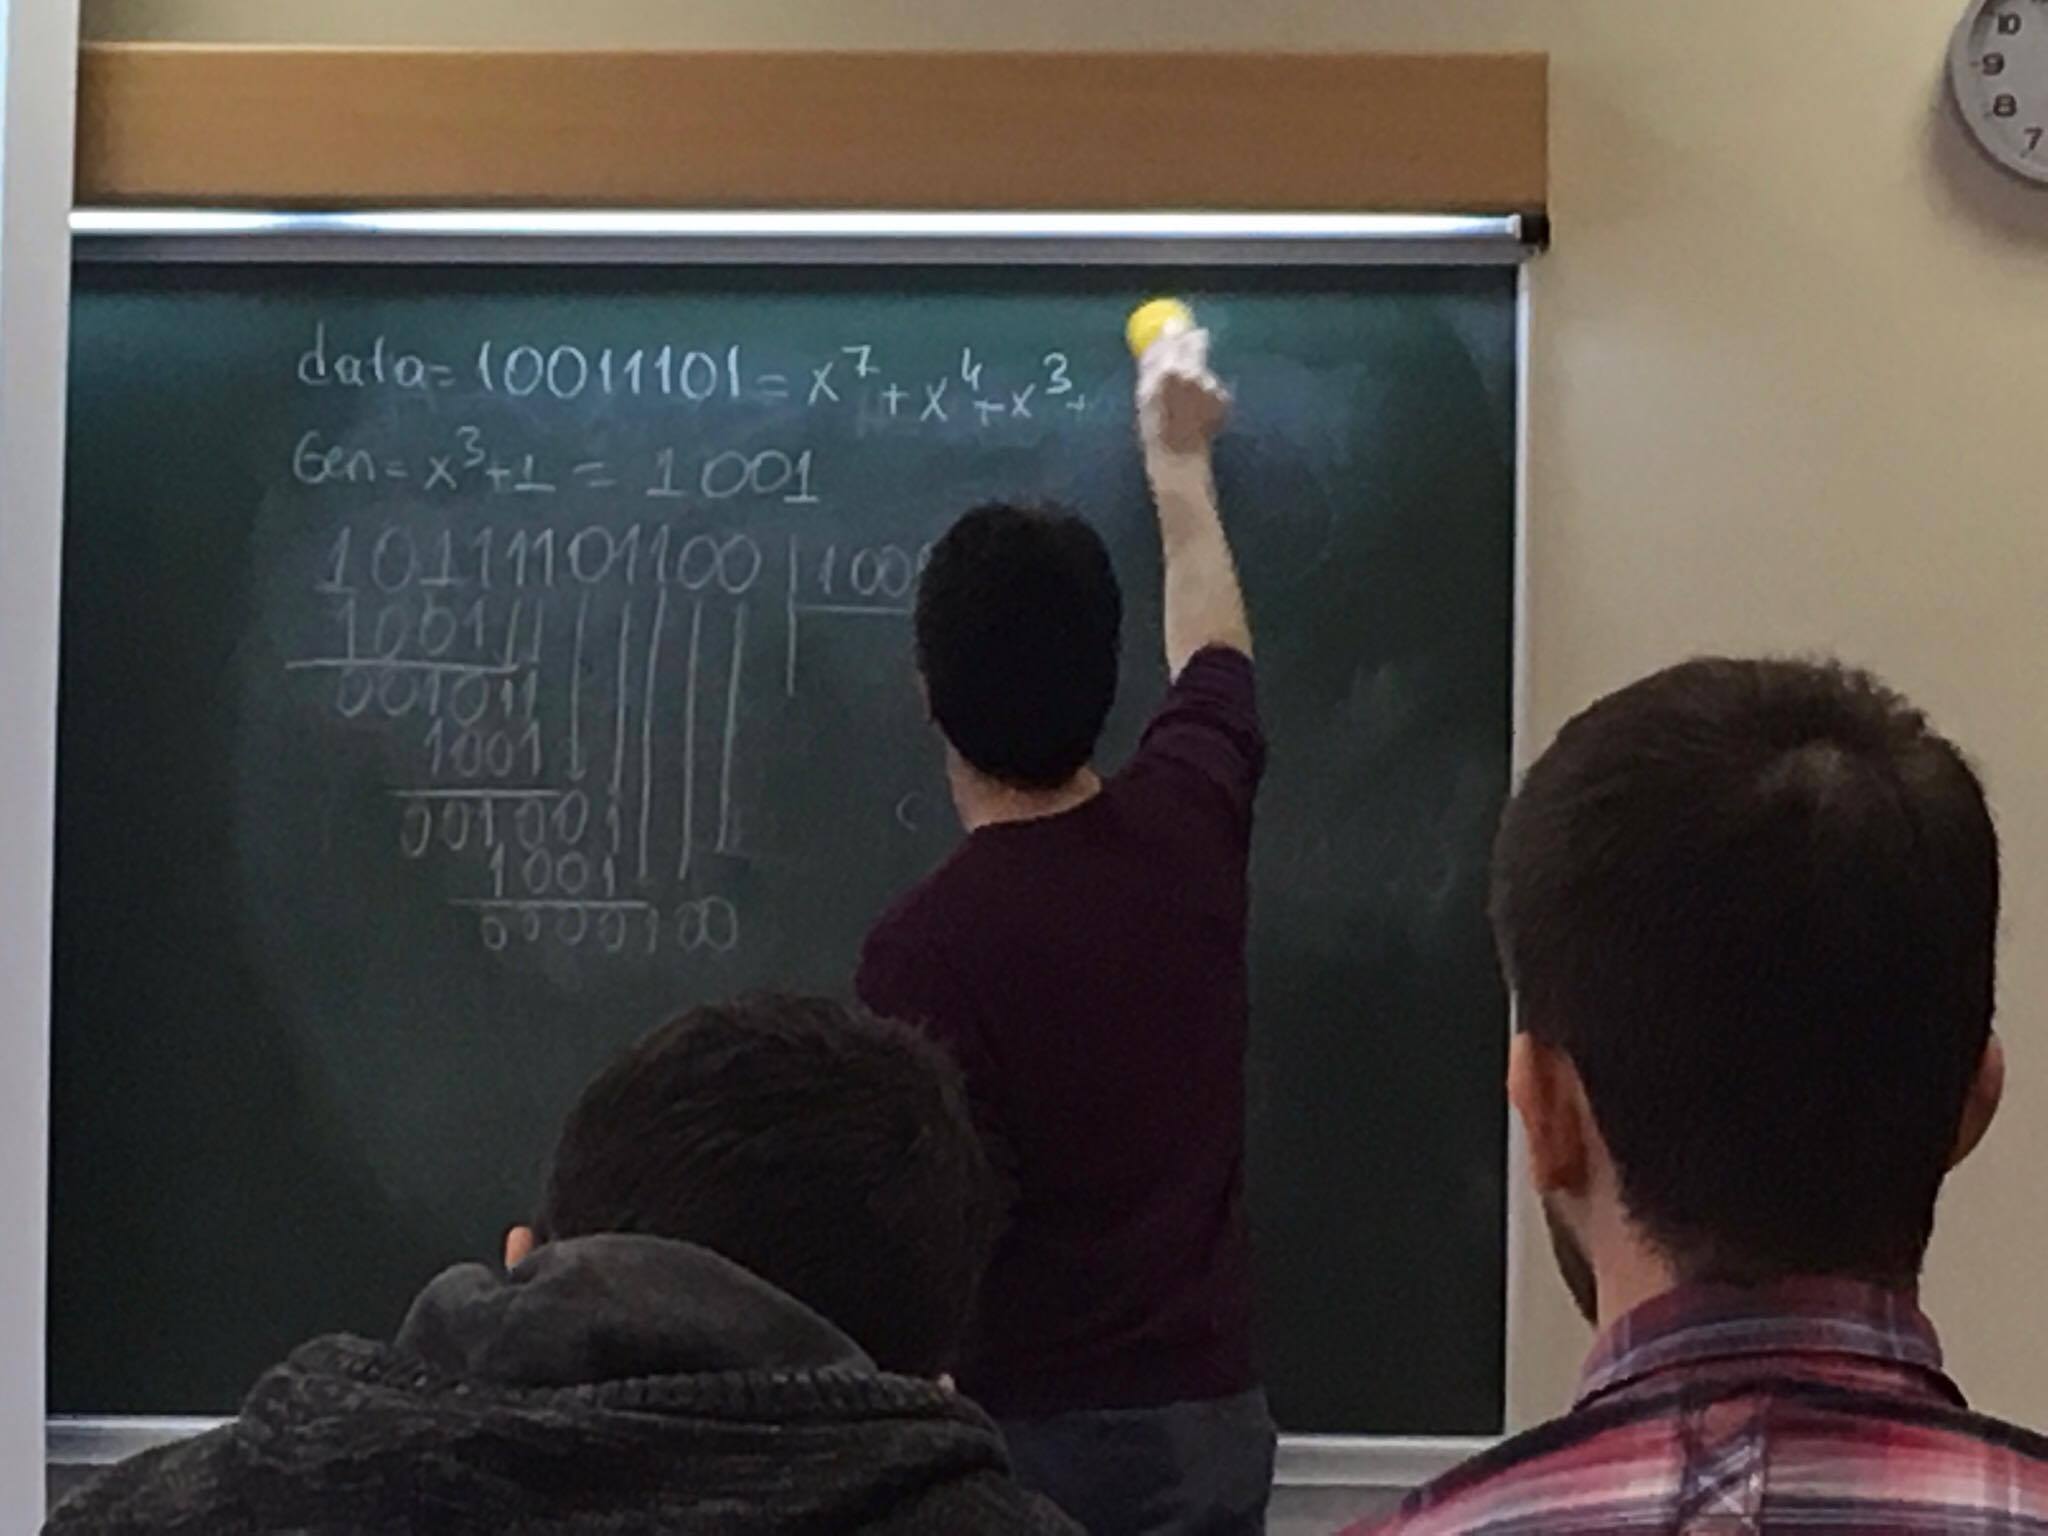 10
9
8
7
data=10011101=x⁷+x⁴+x³+
Gen=x³+1=1001
10111101100 100
1001
001011
1001
001001
1001
0000100